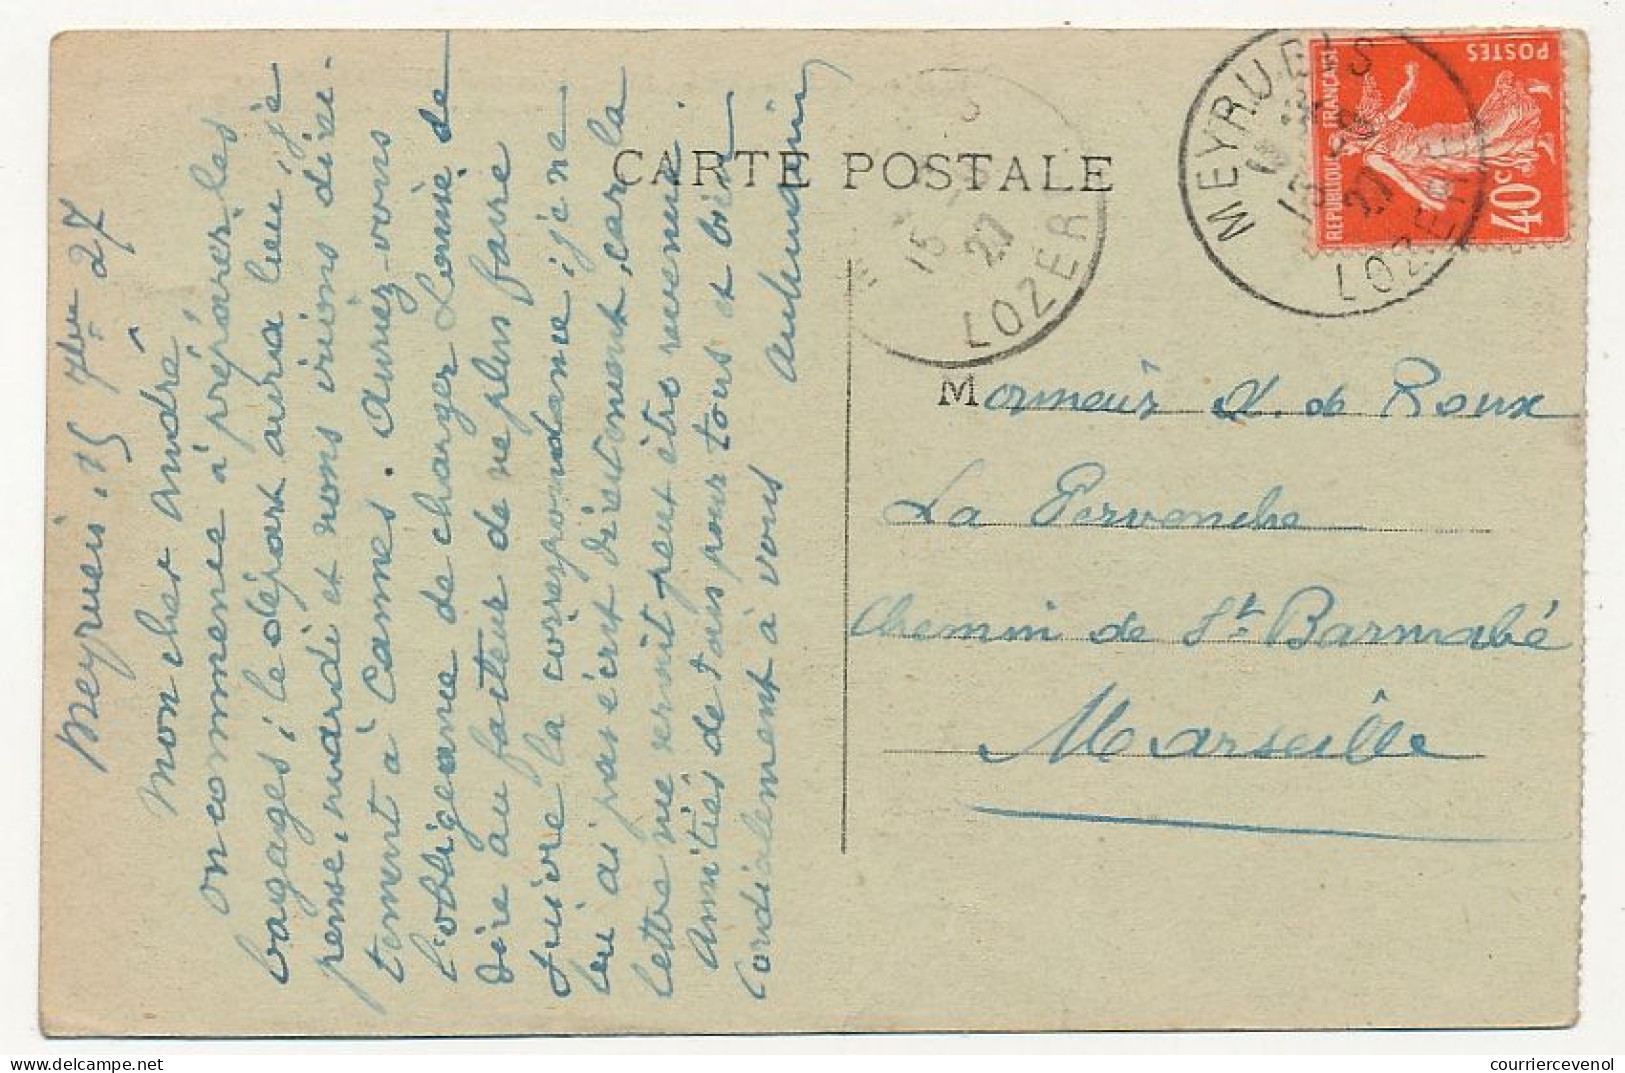 CARTE POSTALE
Meyrueis, 15 7bre 27
Mon cher André
on commence à préparer les
bagages ; le départ aura lieu, je
pense, mardi et nous irions direc-
tement à Cannes. Auriez-vous
l'obligeance de charger Léonie de
dire au facteur de ne plus faire
suivre la correspondance ; je ne
lui ai pas écrit directement, car la
lettre me serait peut être revenue.
Amitiés de tous pour tous et bien
cordialement à vous
REPUBLIQUE FRANÇAISE
POSTES
40c
MEYRUEIS
15
27
LOZERE
15
27
LOZERE
Monsieur A. de Roux
La Pervenche
Chemin de St Barnabé
Marseille
courriercevenol
delcampe.net